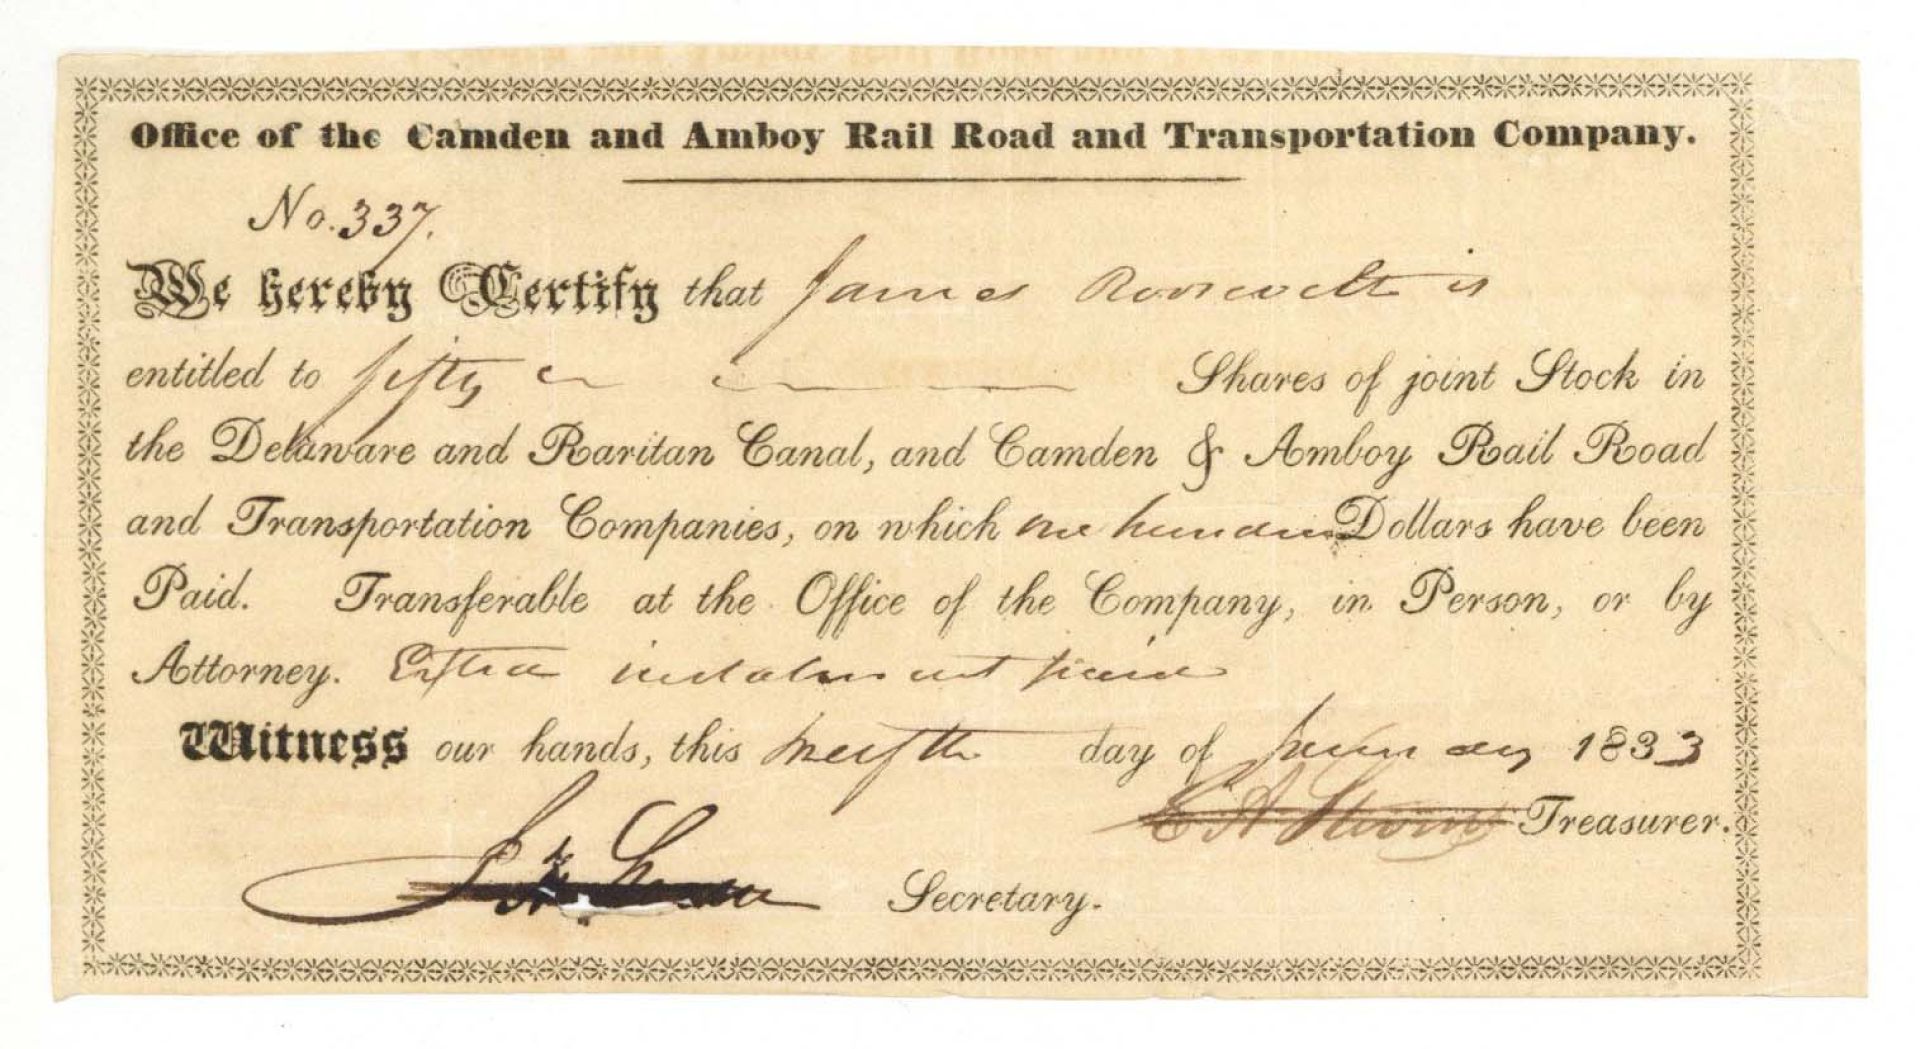 Office of the Camden and Amboy Rail Road and Transportation Company.
No. 337.
We hereby Certify that James Roosevelt is
entitled to fifty Shares of joint Stock in
the Delaware and Raritan Canal, and Camden & Amboy Rail Road
and Transportation Companies, on which one hundred Dollars have been
Paid. Transferable at the Office of the Company, in Person, or by
Attorney. Extra instalment paid
Witness our hands, this twelfth day of January 1833
E A Stevens Treasurer.
Secretary.